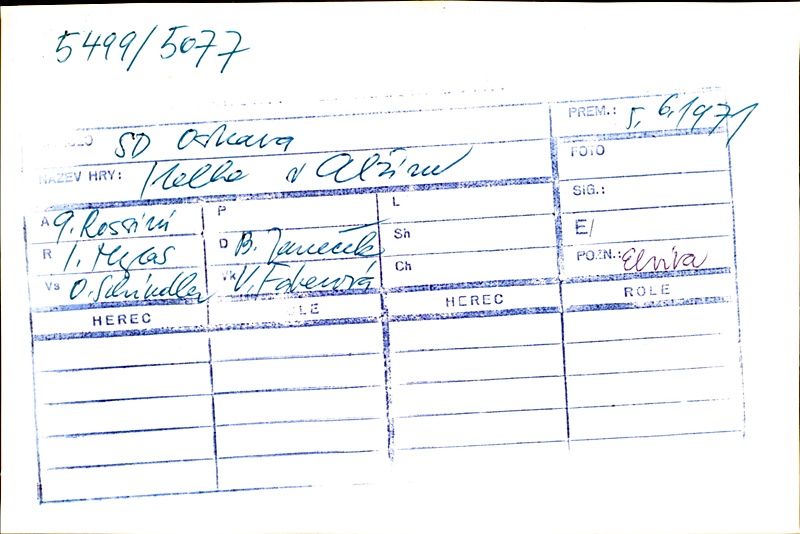 5499/5077
SD Ostrava
PREM.: 5. 6. 1971
NÁZEV HRY: Italka v Alžíru
FOTO
SIG.:
E/
POZN.: Elvíra
A G. Rossini
P
L
R I. Hylas
D B. Janeček
Sh
Vs O. Schindler
Vk V. Fáberová
Ch
HEREC
ROLE
HEREC
ROLE